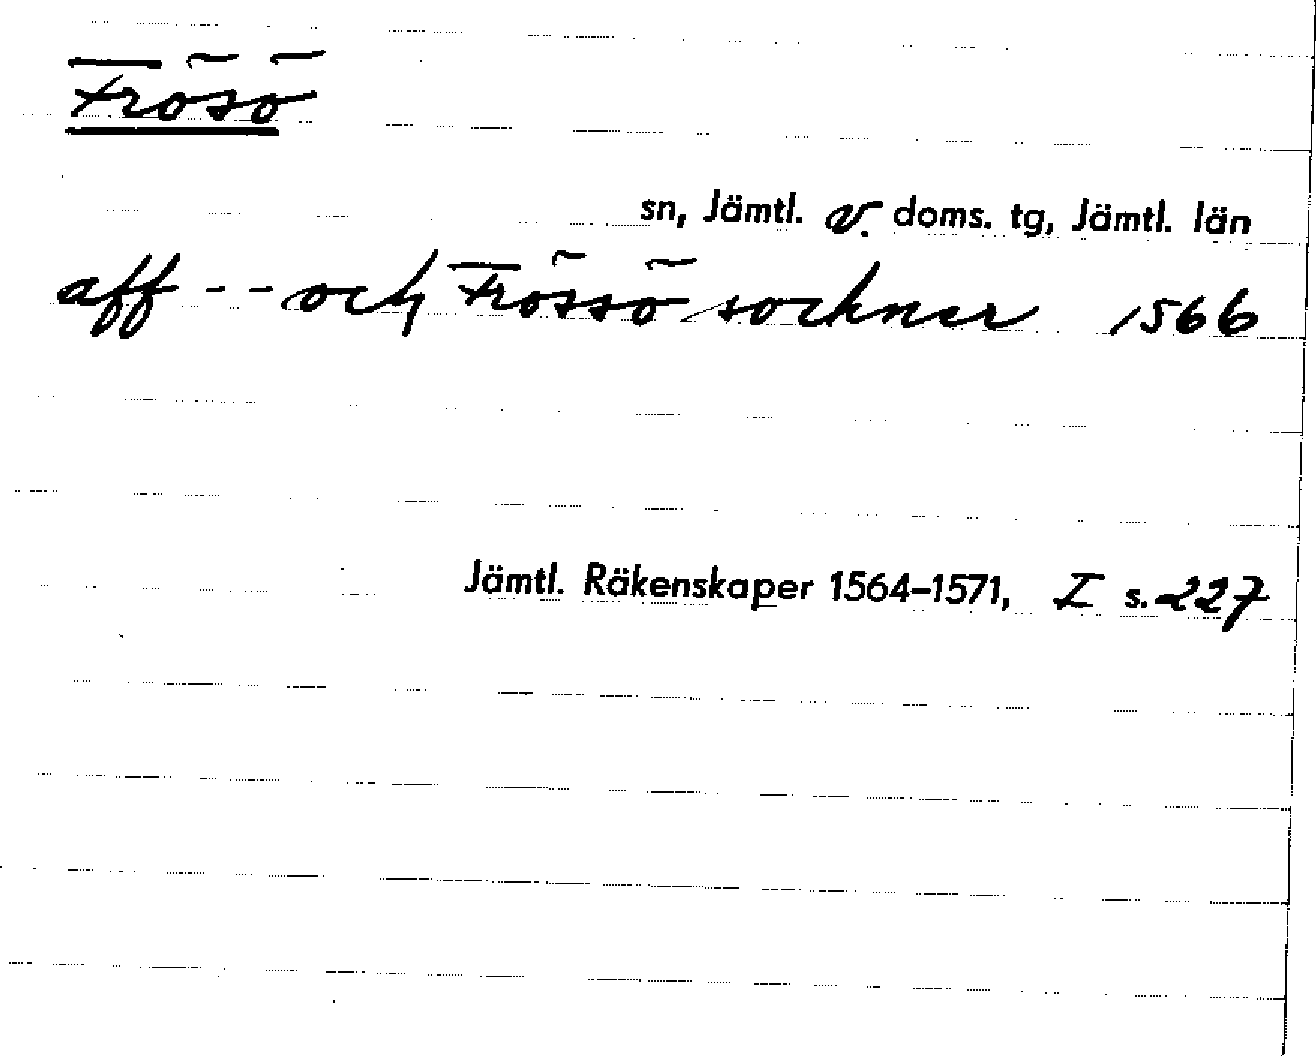 Frösö
sn, Jämtl. v. doms. tg, Jämtl. län
aff -- och Frössö sochner 1566
Jämtl. Räkenskaper 1564–1571, I s. 227